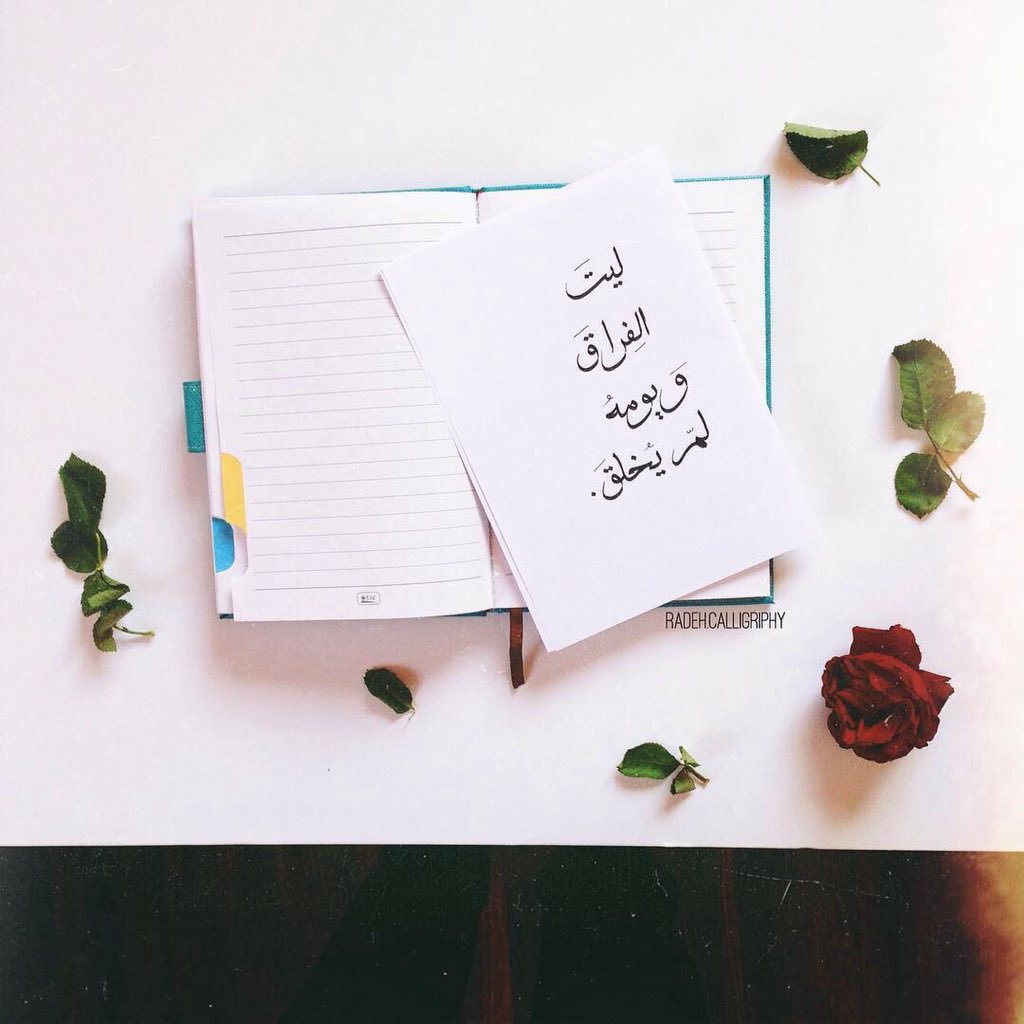 ليتَ
الفِراقَ
وَيومهُ
لمّ يُخلقَ.
RADEH.CALLIGRIPHY